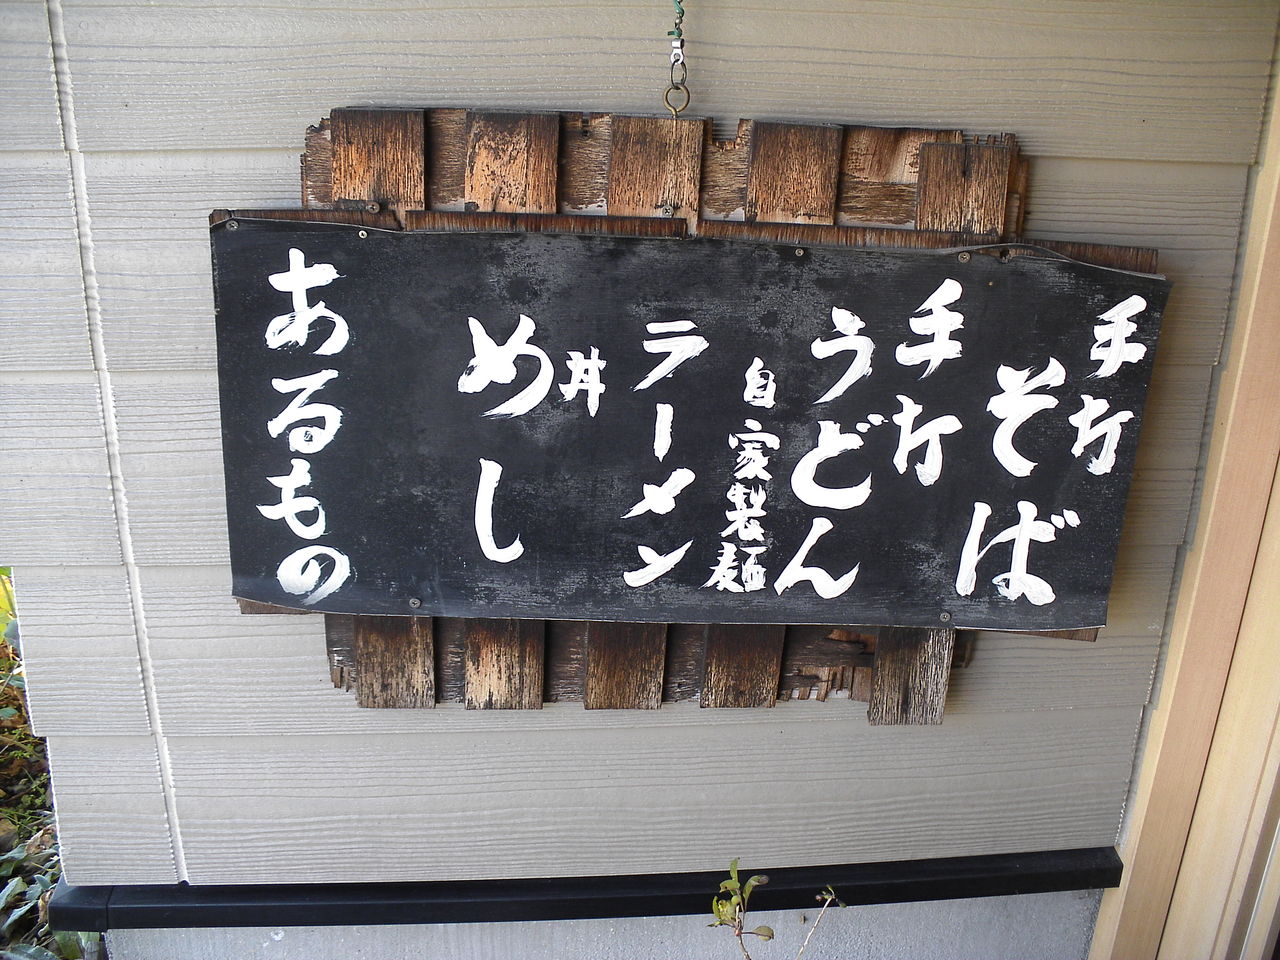 手打
そば
手打
うどん
自家製麺
ラーメン
丼
めし
あるもの